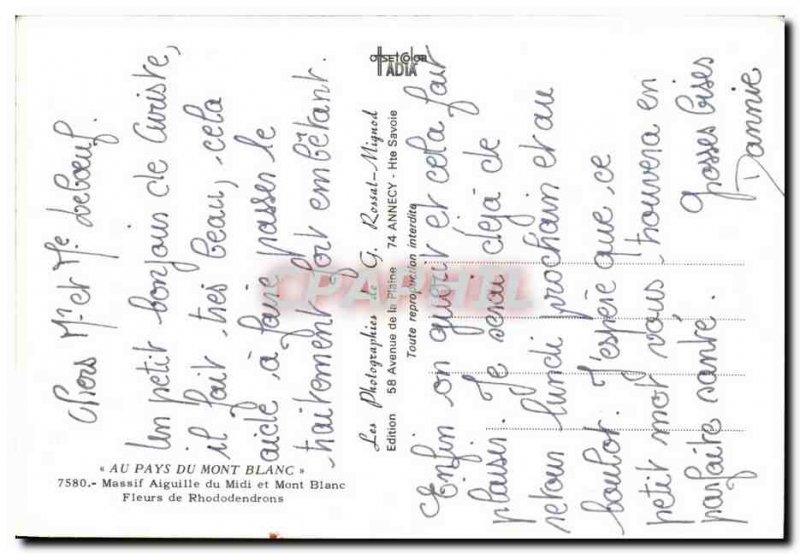 Chers Mr et Me Leboeuf.
Un petit bonjour de Curiste,
il fait très beau, cela
aide à faire passer le
traitement fort embêtant.
Enfin on guérit et cela fait
plaisir. Je serai déjà de
retour lundi prochain et au
boulot. J'espère que ce
petit mot vous trouvera en
parfaite santé.
Grosses bises
Dannie
« AU PAYS DU MONT BLANC »
7580.- Massif Aiguille du Midi et Mont Blanc
Fleurs de Rhododendrons
Les Photographies de G. Rossat-Mignod
Edition 58 Avenue de la Plaine 74 ANNECY - Hte Savoie
Toute reproduction interdite
OFFSET COLOR
ADIA
CPAPHIL